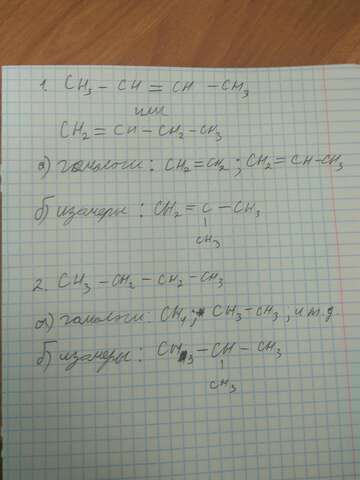 1. CH₃ – CH = CH – CH₃
или
CH₂ = CH – CH₂ – CH₃
а) гомологи: CH₂=CH₂; CH₂=CH–CH₃
б) изомеры: CH₂ = C – CH₃
CH₃
2. CH₃ – CH₂ – CH₂ – CH₃
а) гомологи: CH₄; CH₃–CH₃; и т.д.
б) изомеры: CH₃ – CH – CH₃
CH₃